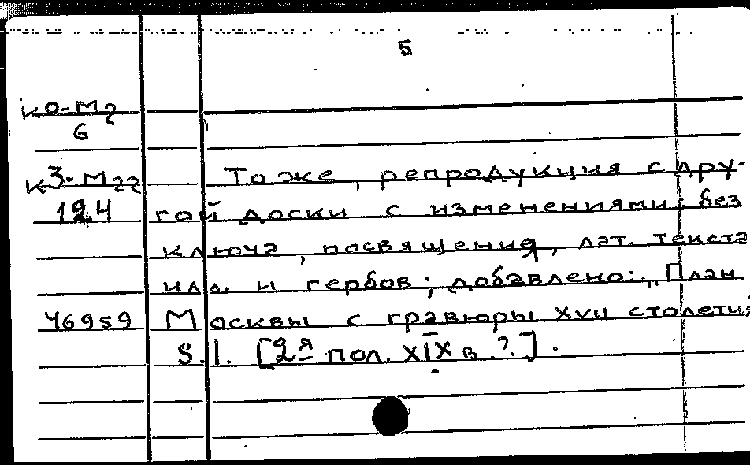 5
К0-М2
6
К3-М22
124
То же, репродукция с дру-
гой доски с изменениями: без
ключа, посвящения, лат. текста
илл. и гербов; добавлено: "План
46959 Москвы с гравюры XVII столетия
S.l. [2я пол. XIX в.?].